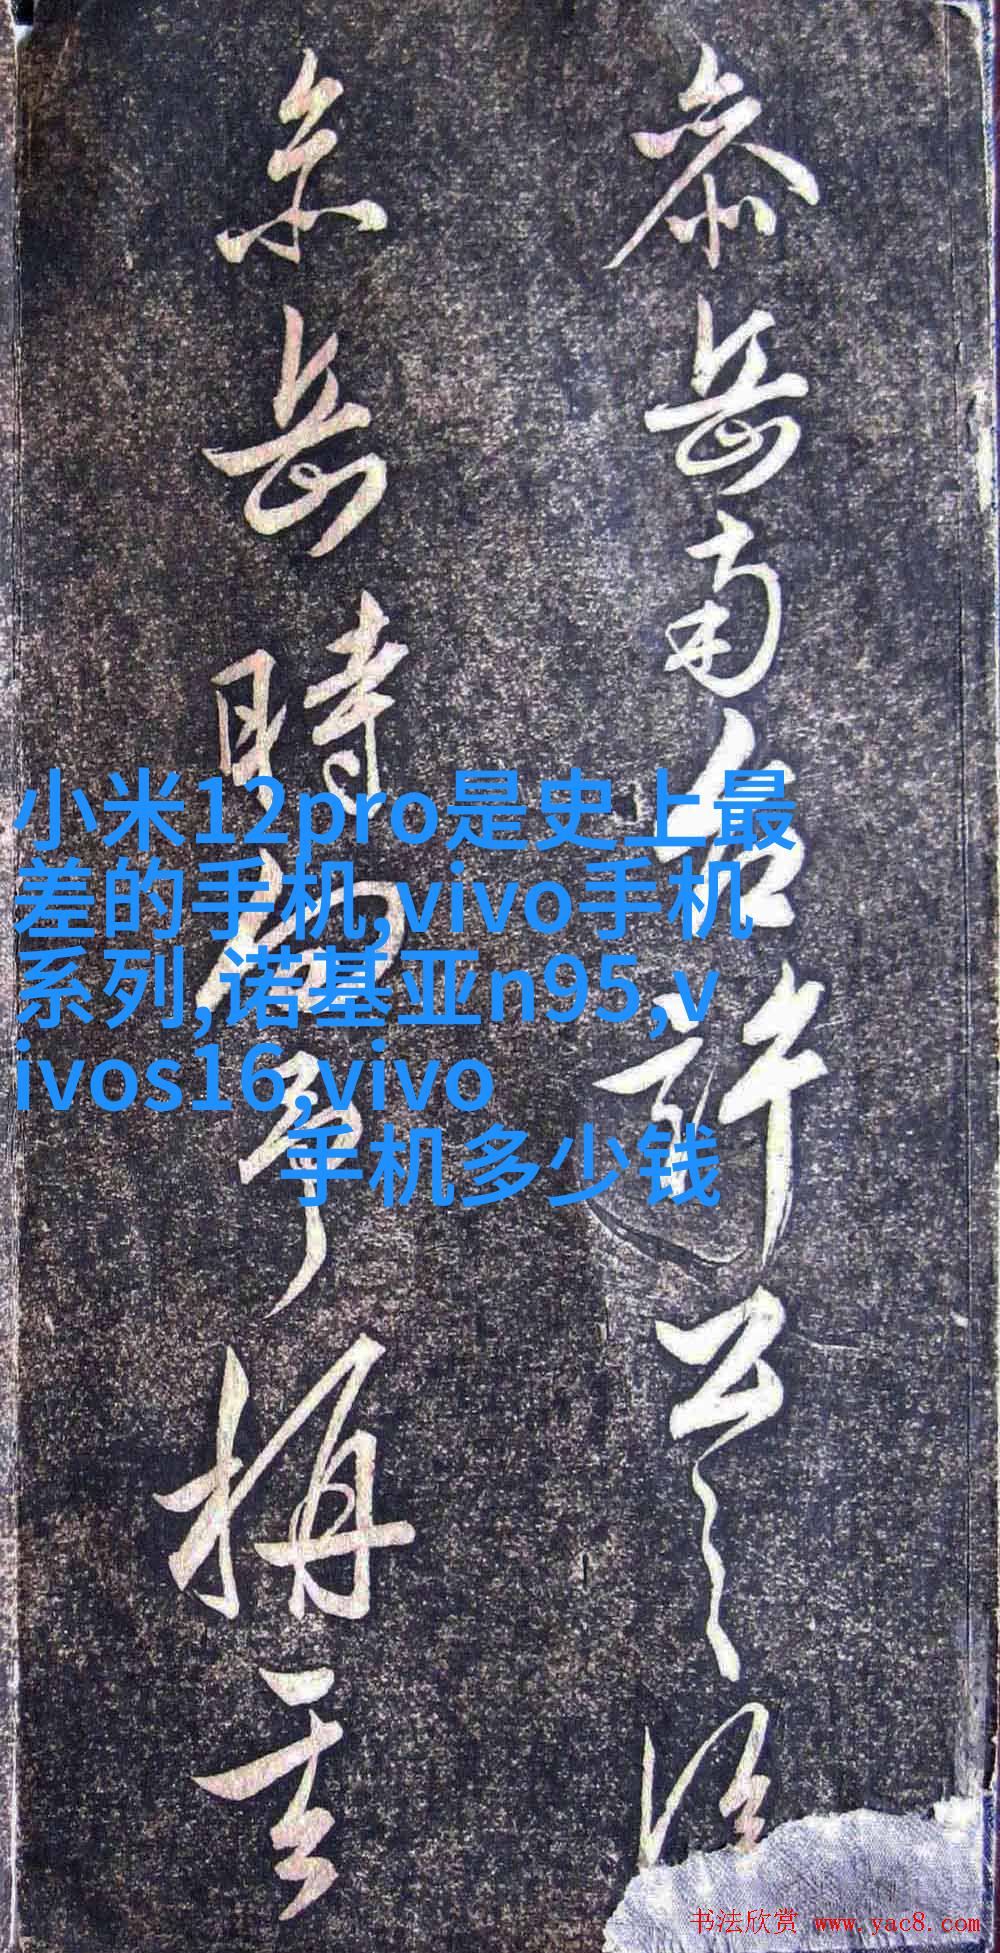 泰岳南台許公之
岳時
再主
小米12pro是史上最
差的手机,vivo手机
系列,诺基亚n95,v
ivos16,vivo
手机多少钱
书法欣赏 www.yac8.com